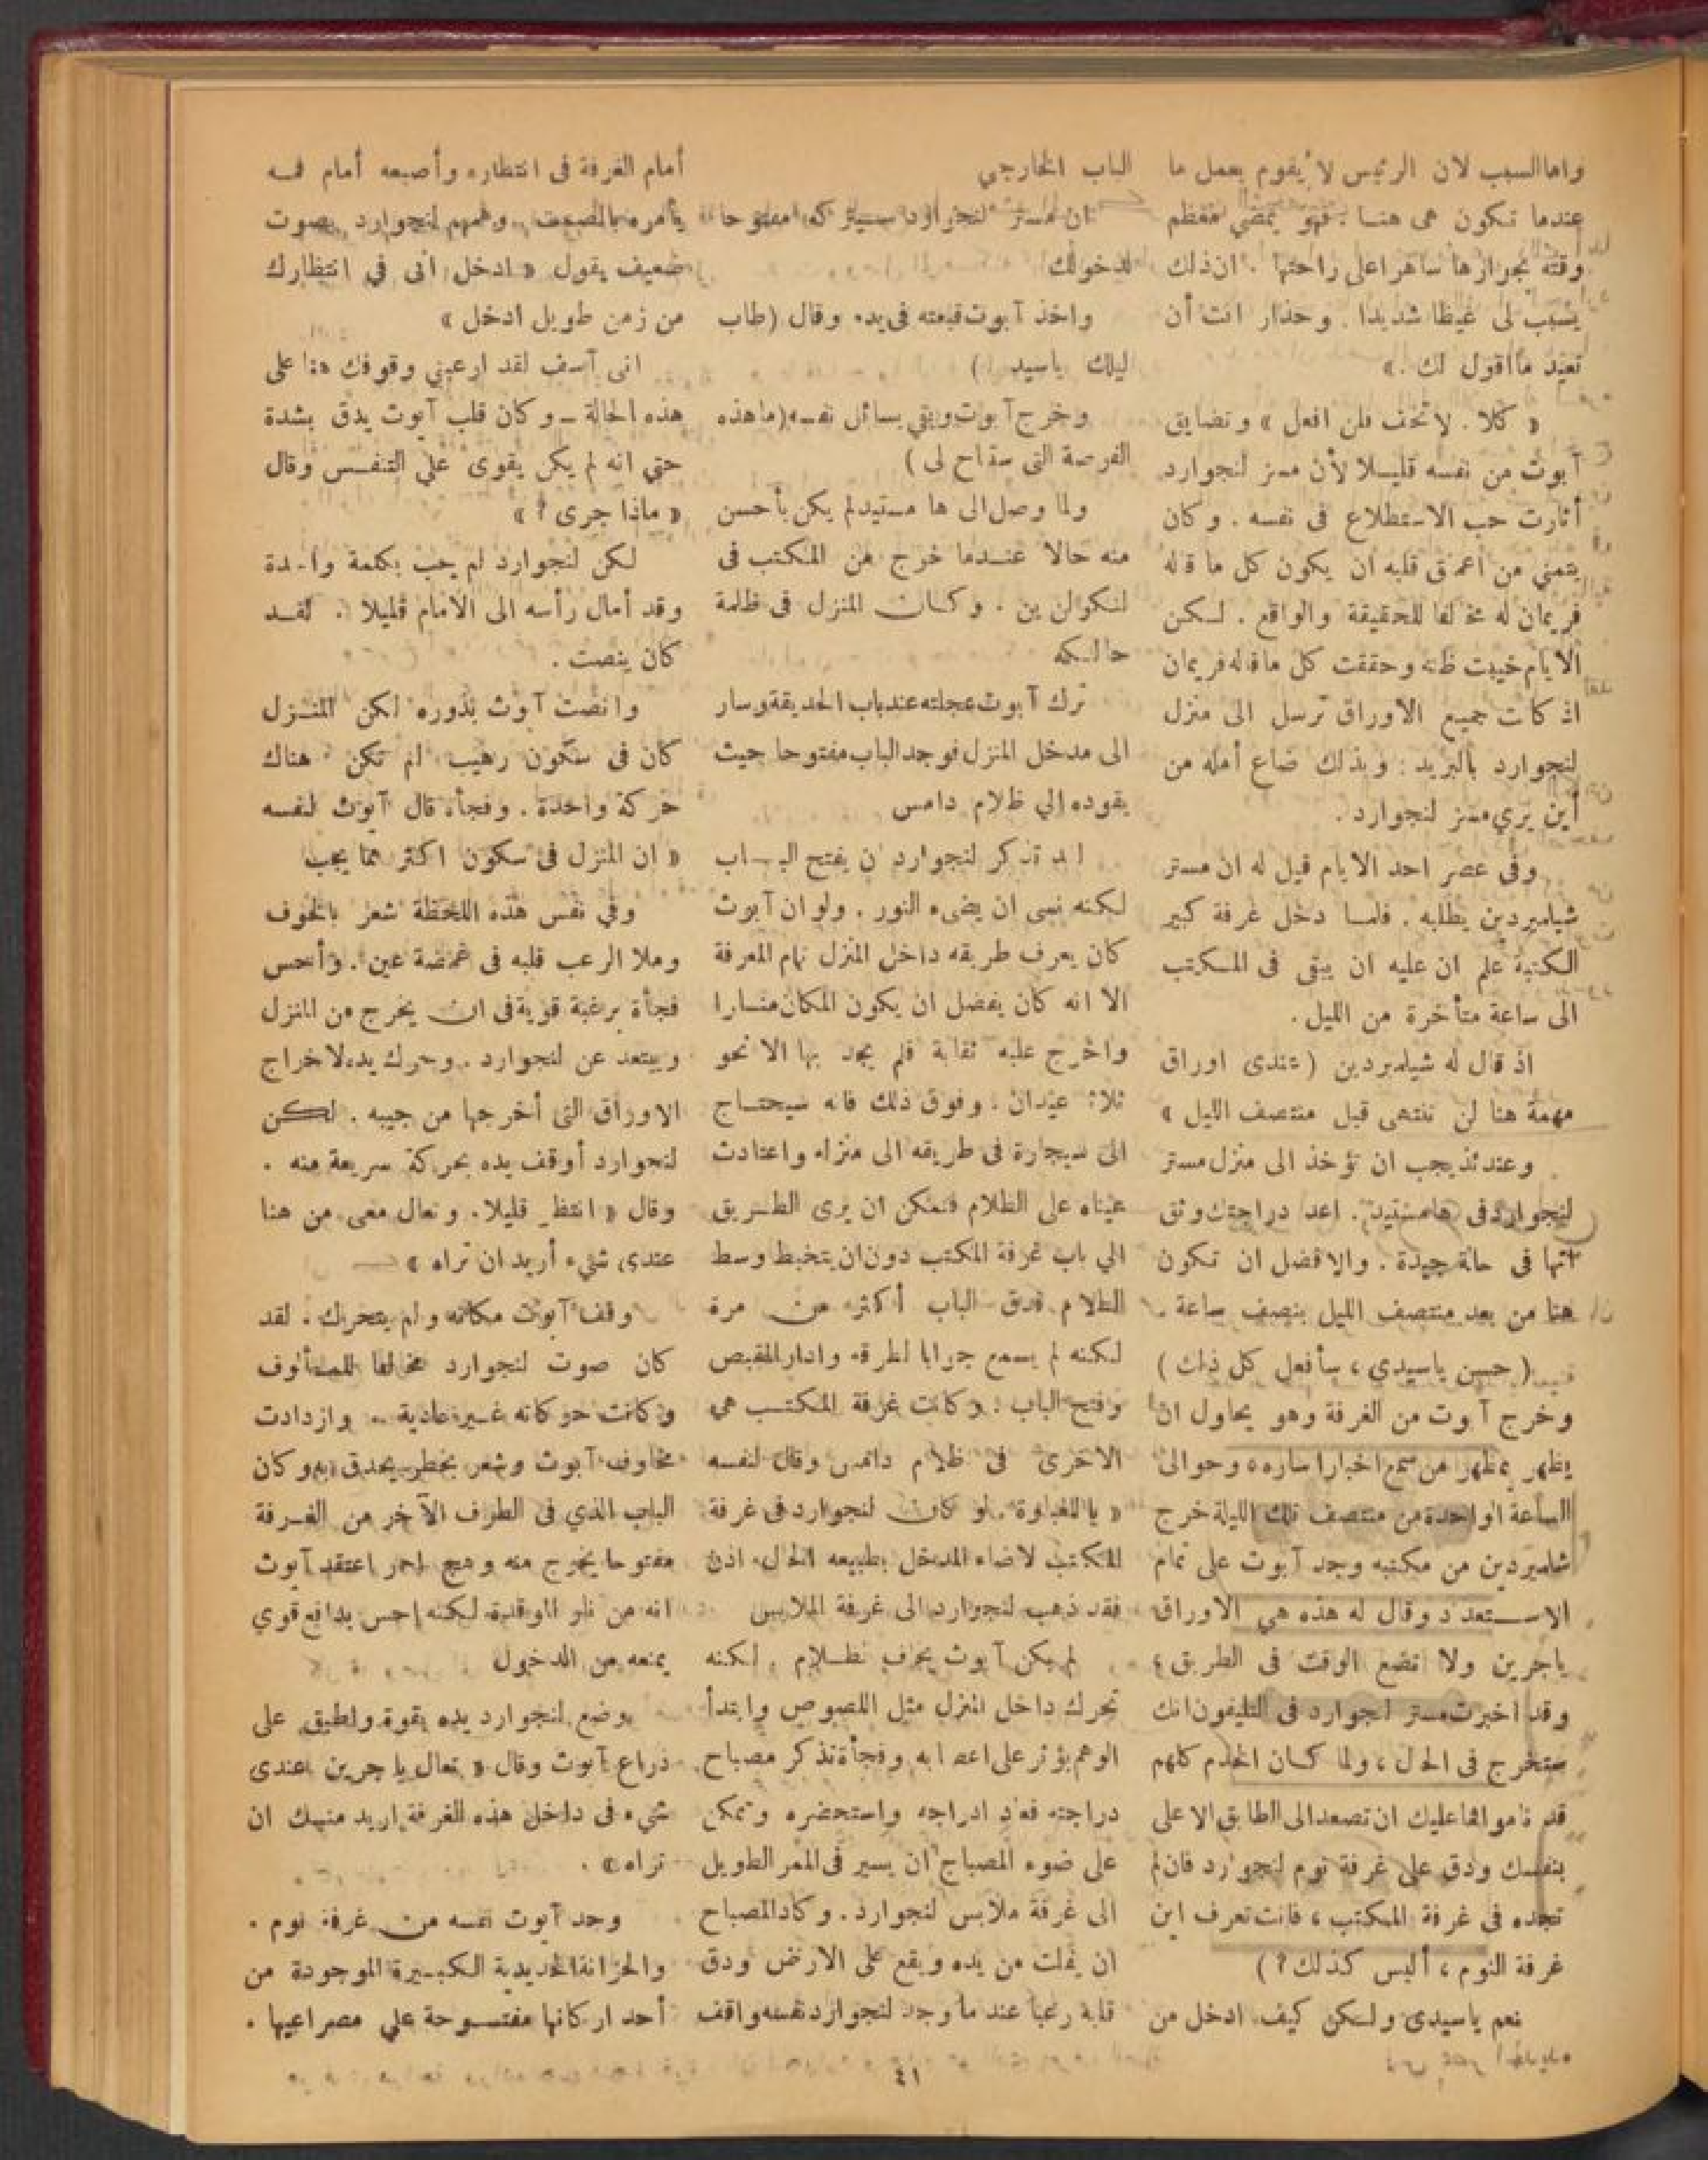 واما السبب لان الرئيس لا يقوم بعمل ما
عندما تكون هى هنا . فهو يمضي معظم
وقته بجوارها ساهرا على راحتها . ان ذلك
يسبب لى غيظا شديدا . وحذار انت أن
تعيد ما اقول لك . »
« كلا . لا تخف فلن افعل » وتضايق
آبوت من نفسه قليلا لأن مسز لنجوارد
أثارت حب الاستطلاع فى نفسه . وكان
يتمني من اعمق قلبه ان يكون كل ما قاله
فريمان له مخالفا للحقيقة والواقع . لكن
الايام خيبت ظنه وحققت كل ما قاله فريمان
اذ كانت جميع الاوراق ترسل الى منزل
لنجوارد بالبريد : وبذلك ضاع أمله من
أين يري مسز لنجوارد .
وفى عصر احد الايام قيل له ان مستر
شيامبردين يطلبه . فلما دخل غرفة كبير
الكتبة علم ان عليه ان يبقى فى المكتب
الى ساعة متأخرة من الليل .
اذ قال له شيامبردين ( عندى اوراق
مهمة هنا لن تنتهى قبل منتصف الليل »
وعندئذ يجب ان تؤخذ الى منزل مستر
لنجوارد فى هامستيد . اعد دراجتك وثق
انها فى حالة جيدة . والافضل ان تكون
هنا من بعد منتصف الليل بنصف ساعة .
( حسن ياسيدي ، سأفعل كل ذلك )
وخرج آبوت من الغرفة وهو يحاول ان
يظهر بمظهر من سمع اخبارا ساره ، وحوالى
الساعة الواحدة من منتصف تلك الليلة خرج
شامبردين من مكتبه وجد آبوت على تمام
الاستعداد وقال له هذه هي الاوراق
ياجرين ولا تضع الوقت فى الطريق ؛
وقد اخبرت مستر لنجوارد فى التليفون انك
ستخرج فى الحال ، ولما كان الخدم كلهم
قد ناموا فما عليك ان تصعد الى الطابق الاعلى
بنفسك ودق على غرفة نوم لنجوارد فان لم
تجده فى غرفة المكتب ، فانت تعرف اين
غرفة النوم ، أليس كذلك ؟ )
نعم ياسيدى ولكن كيف ادخل من
الباب الخارجي
ان مستر لنجوارد سيتركه مفتوحا
لدخولك
واخذ آبوت قبعته فى يده وقال ( طاب
ليلك ياسيد )
وخرج آبوت وبقي يسائل نفسه ( ما هذه
الفرصة التى ستتاح لى )
ولما وصل الى هامستيد لم يكن بأحسن
منه حالا عندما خرج من المكتب فى
لنكولن ين . وكان المنزل فى ظلمة
حالكه
ترك آبوت عجلته عند باب الحديقة وسار
الى مدخل المنزل فوجد الباب مفتوحا حيث
يقوده إلي ظلام دامس
لقد تذكر لنجوارد ان يفتح الباب
لكنه نسى ان يضىء النور . ولو ان آبوت
كان يعرف طريقه داخل المنزل تمام المعرفة
الا انه كان يفضل ان يكون المكان منارا
واخرج علبة ثقابة فلم يجد بها الا نحو
ثلاث عيدان . وفوق ذلك فانه سيحتاج
الى سيجارة فى طريقه الى منزله واعتادت
عيناه على الظلام فتمكن ان يرى الطريق
الي باب غرفة المكتب دون ان يتخبط وسط
الظلام ودق الباب أكثر من مرة
لكنه لم يسمع جوابا لطرقه وادار المقبض
وفتح الباب : وكانت غرفة المكتب هي
الاخرى فى ظلام دامس وقال لنفسه
« يا للغباوة . لو كان لنجوارد فى غرفة
المكتب لاضاء المدخل بطبيعه الحال . اذن
فقد ذهب لنجوارد الى غرفة الملابس
لم يكن آبوت يخاف الظلام . لكنه
تحرك داخل المنزل مثل اللصوص وابتدأ
الوهم يؤثر على اعصابه وفجأة تذكر مصباح
دراجته فعاد ادراجه واستحضره وتمكن
على ضوء المصباح ان يسير فى الممر الطويل
الى غرفة ملابس لنجوارد . وكاد المصباح
ان يفلت من يده ويقع على الارض ودق
قلبه رعبا عند ما وجد لنجوارد نفسه واقف
أمام الغرفة فى انتظاره وأصبعه أمام فمه
يأمره بالصمت . وهمهم لنجوارد بصوت
ضعيف يقول « ادخل انى في انتظارك
من زمن طويل ادخل »
انى آسف لقد ارعبني وقوفك هنا على
هذه الحالة ـ وكان قلب آبوت يدق بشدة
حتي انه لم يكن يقوى على التنفس وقال
« ماذا جرى ؟ »
لكن لنجوارد لم يجب بكلمة واحدة
وقد أمال رأسه الى الامام قليلا . لقد
كان ينصت .
وانصت آبوت بدوره لكن المنزل
كان فى سكون رهيب لم تكن هناك
حركة واحدة . وفجأة قال آبوت لنفسه
« ان المنزل فى سكون اكثر مما يجب
وفي نفس هذه اللحظة شعر بالخوف
وملا الرعب قلبه فى غمضة عين . وأحس
فجأة برغبة قوية فى ان يخرج من المنزل
ويبتعد عن لنجوارد . وحرك يده لاخراج
الاوراق التى أخرجها من جيبه . لكن
لنجوارد أوقف يده بحركة سريعة منه .
وقال « انتظر قليلا . وتعال معى من هنا
عندى شيء أريد ان تراه »
وقف آبوت مكانه ولم يتحرك . لقد
كان صوت لنجوارد مخالفا للمألوف
وكانت حركاته غير عادية .. وازدادت
مخاوف آبوت وشعر بخطر يحدق به وكان
الباب الذي فى الطرف الآخر من الغرفة
مفتوحا يخرج منه وهج احمر اعتقد آبوت
انه من نار الموقدة لكنه احس بدافع قوي
يمنعه من الدخول
وضع لنجوارد يده بقوة ولطيق على
ذراع آبوت وقال « تعال يا جرين عندى
شيء فى داخل هذه الغرفة اريد منك ان
تراه » .
وجد آبوت نفسه من غرفة نوم .
والخزانة الحديدية الكبيرة الموجودة من
أحد اركانها مفتوحة علي مصراعيها .
٤١